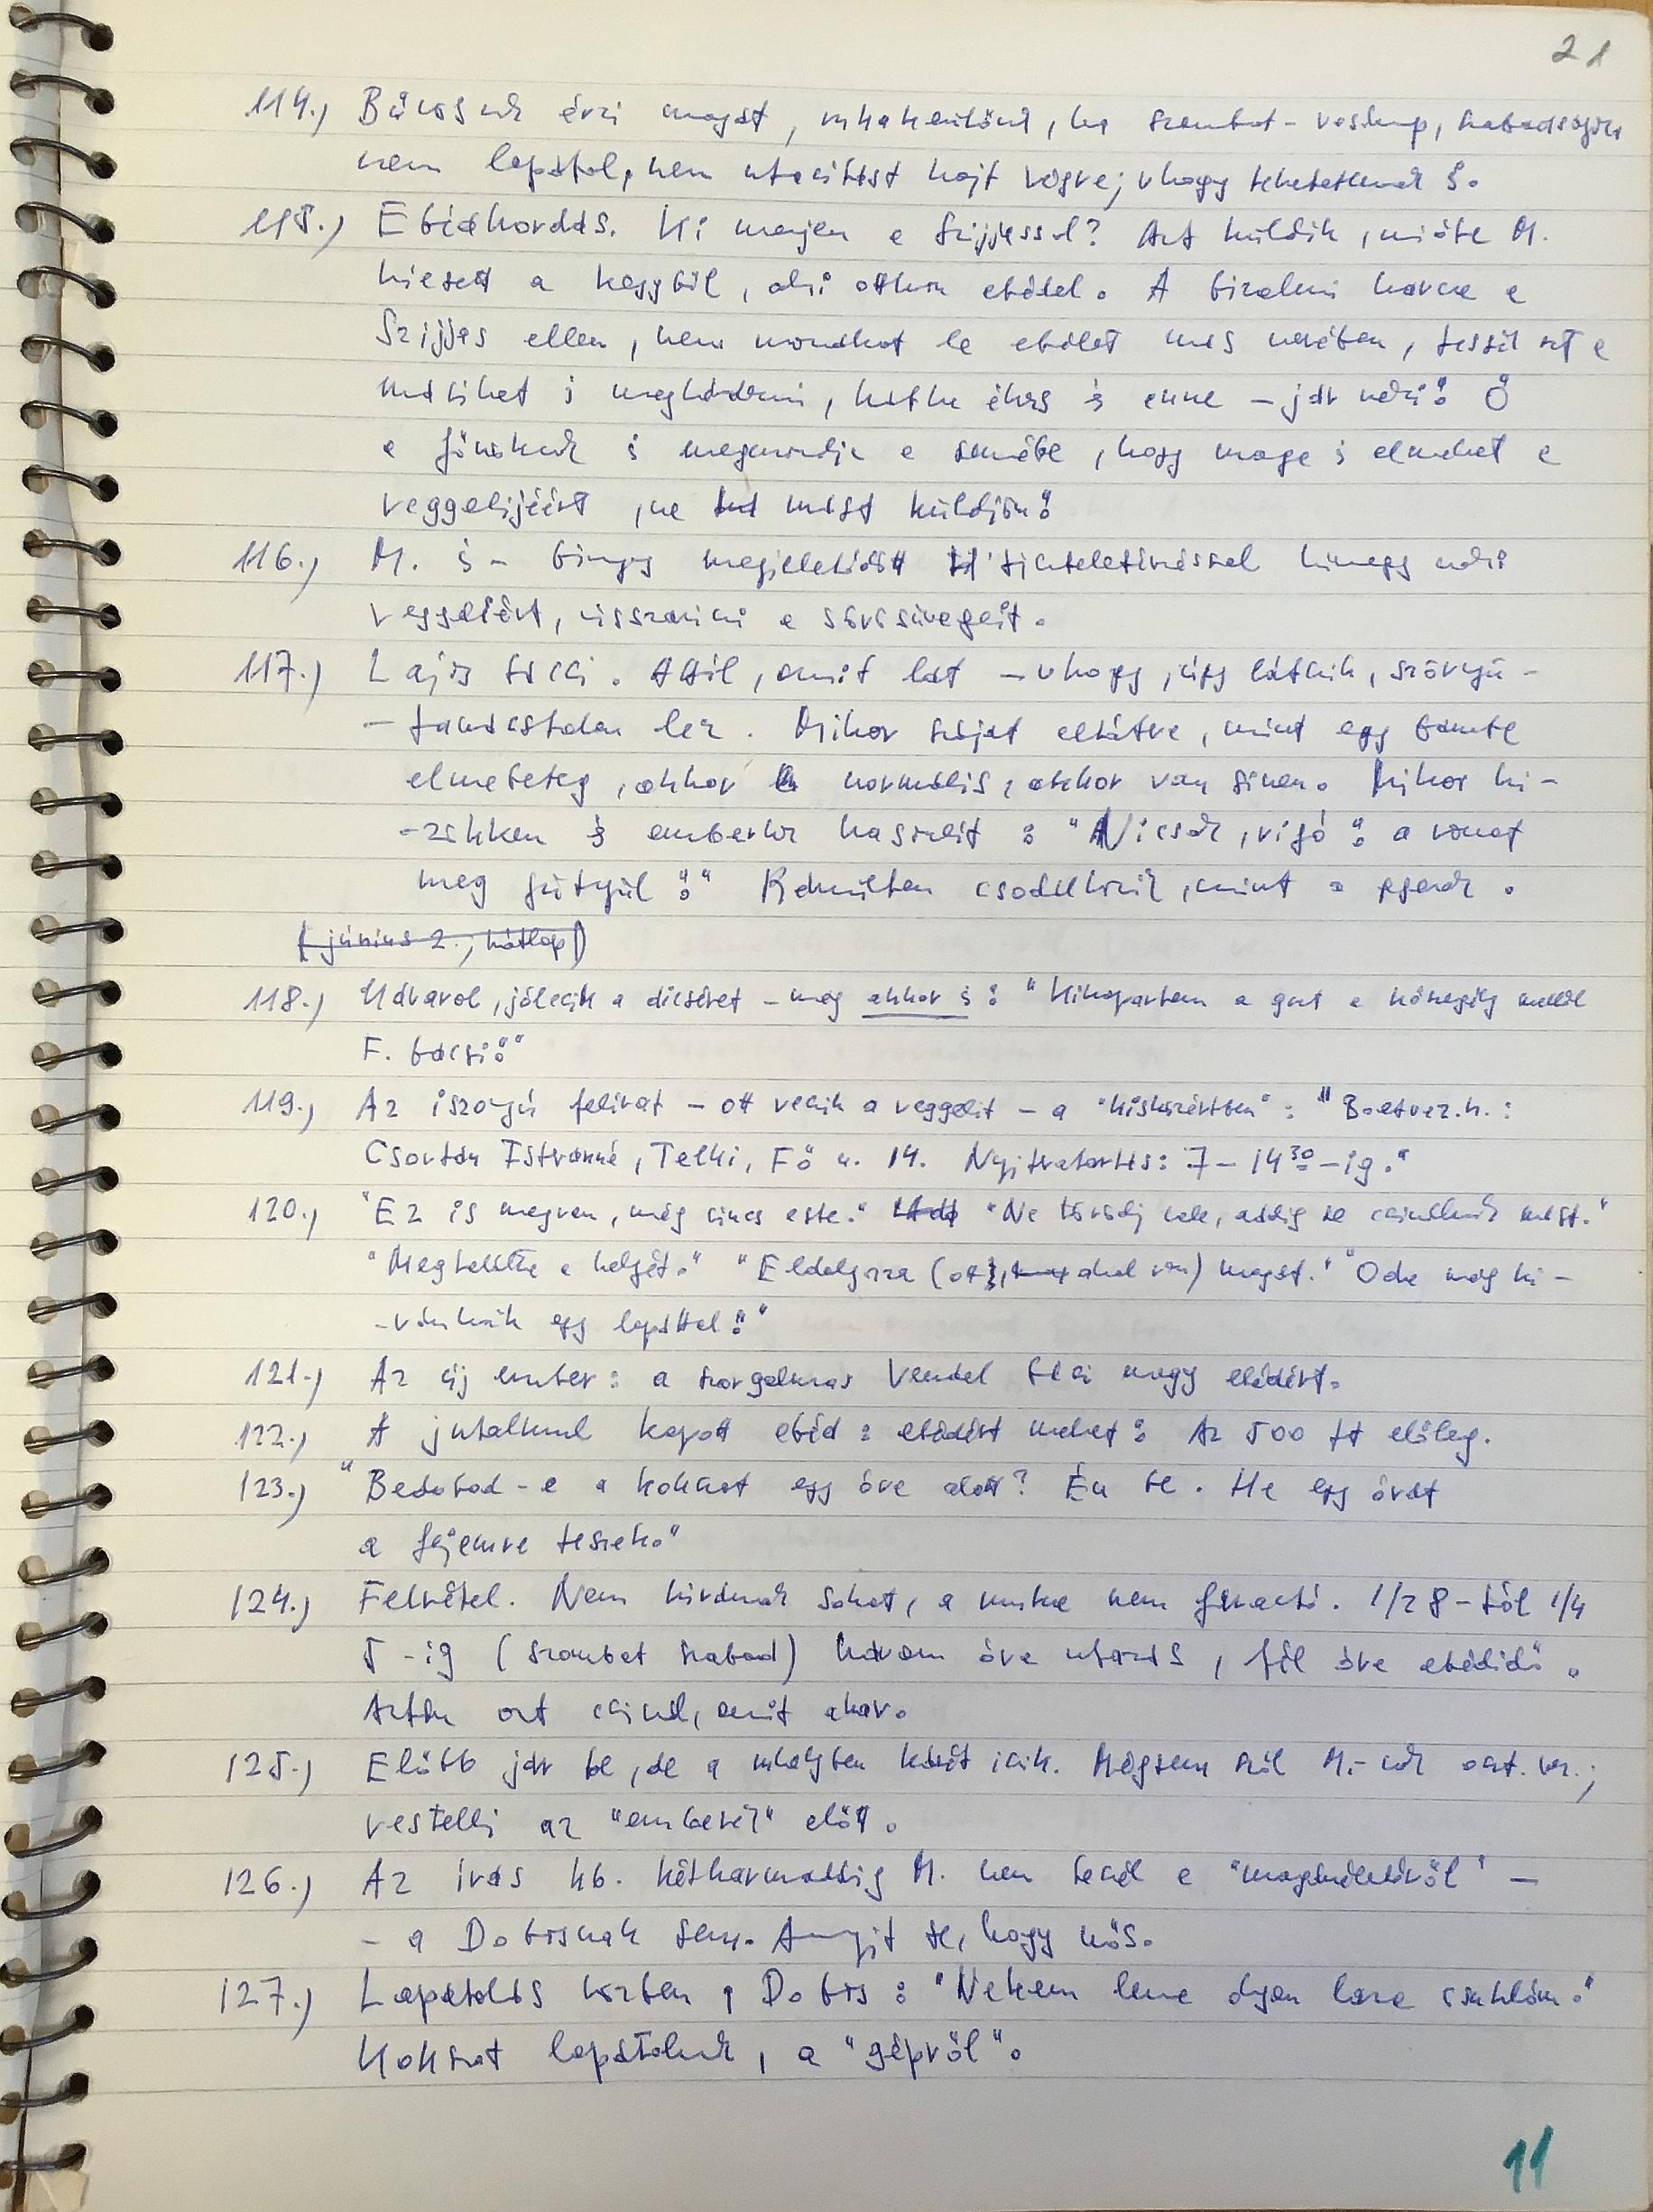 21
114.) Bűnösnek érzi magát, munkakerülőnek, ha szombat-vasárnap, szabadságon
nem lapátol, nem utasítást hajt végre; vhogy tehetetlennek is.
115.) Ebédhordás. Ki menjen a Szíjjassal? Azt küldik, mióta M.
kiesett a kegyből, aki otthon ebédel. A bizalmi harca a
Szíjjas ellen, nem mondhat le ebédet más nevében,
is megkérdezni, hátha éhes is enne – jár neki! Ő
a főnöknek is megmondja a szemébe, hogy maga is elmehet a
reggelijéért, ne mást küldjön!
116.) M. is – bizony megjelenését kimegy neki
reggeliért, visszavinni a sörösüvegeit.
117.) Lajos bácsi. Attól, amit lát – vhogy, úgy látszik, szörnyű-
– tanácstalan lesz. Mikor száját eltátva, mint egy bamba
elmebeteg, akkor normális, akkor van sínen. Mikor ki-
-zökken és emberhez hasonlít: "Nicsak, rigó! a vonat
meg fütyül!" Rémülten csodálkozik, mint a gyerek.
(június 2., hátlap)
118.) Udvarol, jólesik a dicséret – még akkor is: "Kikapartam a gazt a kőszegély mellől
F. bácsi!"
119.) Az iszonyú felirat – ott veszik a reggelit – a "kisközértben": "Boltvez.h.:
Csortán Istvánné, Telki, Fő u. 14. Nyitvatartás: 7 – 14 30 –ig."
120.) "Ez is megvan, még sincs este." "Ne törődj vele, addig se csinálunk mást."
"Megtalálta a helyét." "Eldolgozza (ott, ahol van) magát." "Oda még ki-
-vánkozik egy lapáttal!"
121.) Az új ember: a szorgalmas Vendel bácsi megy ebédért.
122.) A jutalmul kapott ebéd: ebédért mehet! Az 500 Ft előleg.
123.) "Bedobod-e a kokszot egy óra alatt? Én be. Ha egy órát
a fejemre teszek."
124.) Felvétel. Nem kívánnak sokat, a munka nem fárasztó. 1/2 8-tól 1/4
5-ig (szombat szabad) három óra utazás, fél óra ebédidő.
Aztán azt csinál, amit akar.
125.) Előbb jár le, de a műhelyben kávét iszik. Mégsem szól M.-nek oszt. vez.;
restelli az "emberei" előtt.
126.) Az írás kb. kétharmadáig M. nem beszél a "magánéletéről" –
– a Dobosnak sem. Annyit se, hogy nős.
127.) Lapátolás közben, Dobos: "Nekem lenne olyan laza csuklóm."
Kokszot lapátolnak, a "gépről".
11